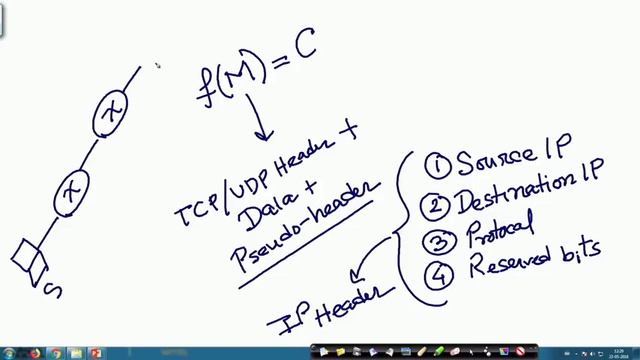 f(M) = C
TCP/UDP Header +
Data +
Pseudo-header
① Source IP
② Destination IP
③ Protocol
④ Reserved bits
IP Header
X
X
S
13:29
22-05-2018